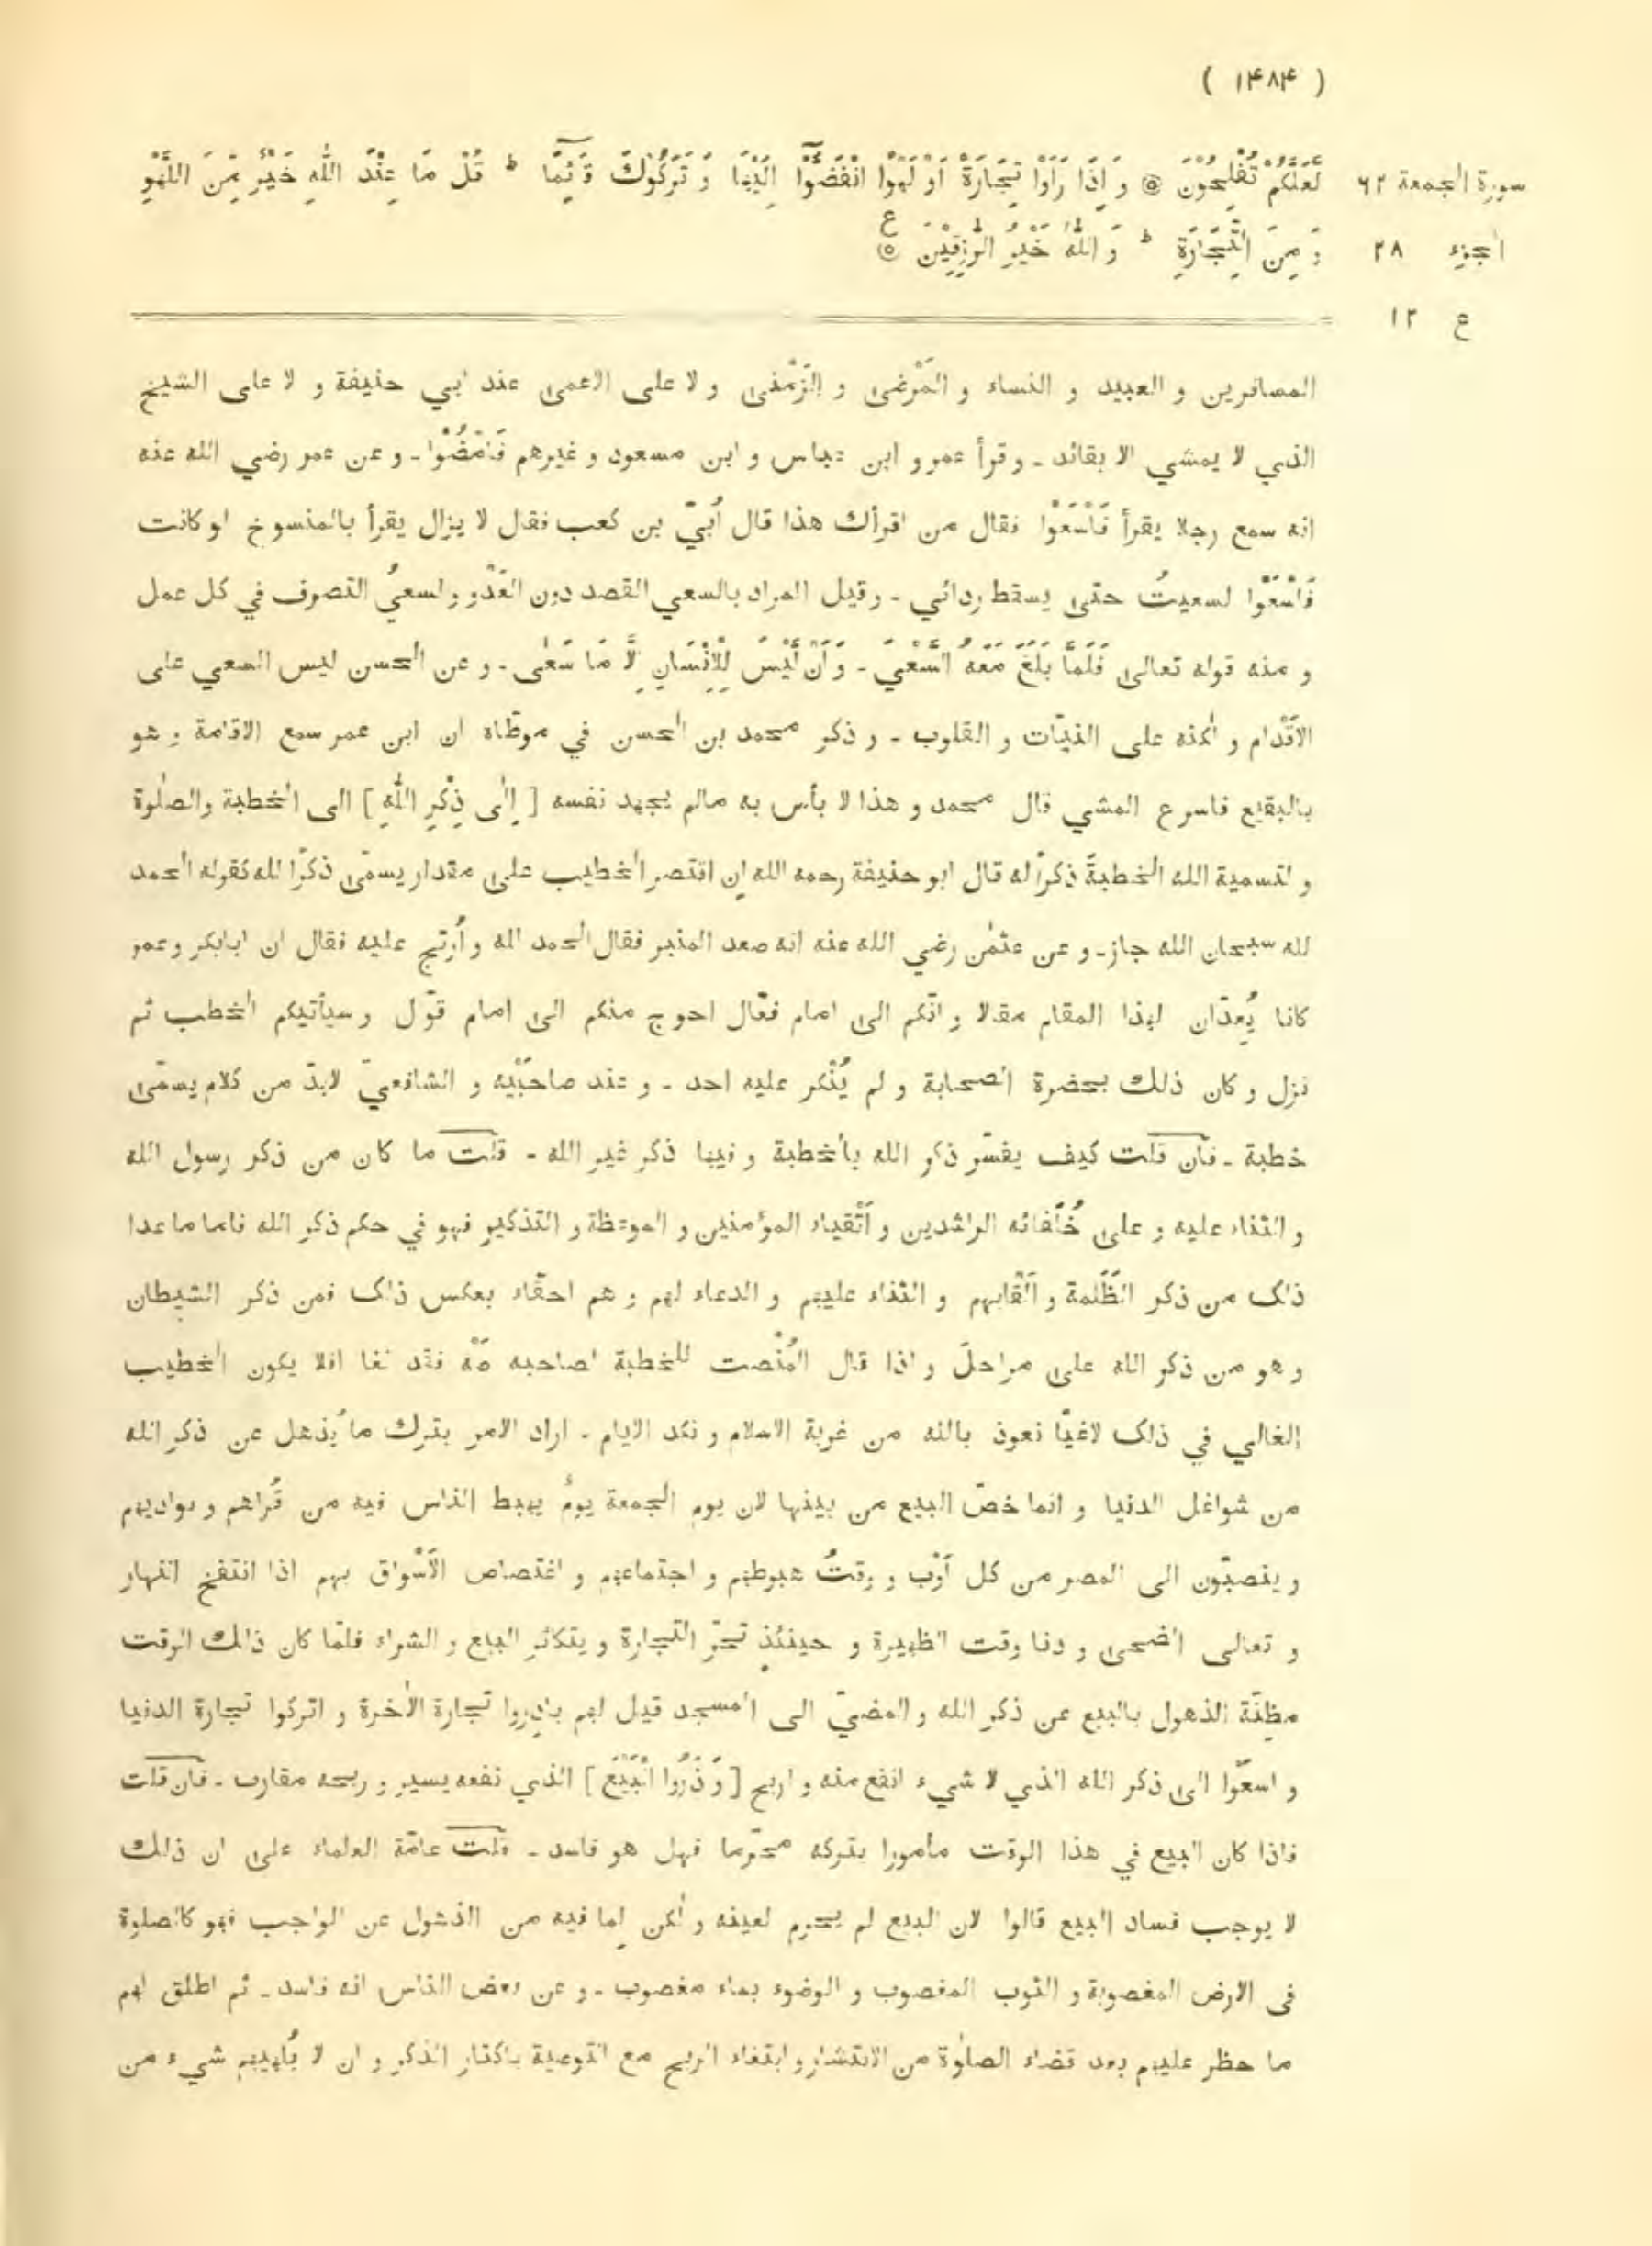 ( ۱۴۸۴ )
سورة الجمعة ۶۲
الجزء ۲۸
ع ۱۲
لَعَلَّكُمْ تُفْلِحُوْنَ ۞ وَ اِذَا رَاَوْا تِجَارَةً اَوْ لَهْوًا انْفَضُّوْٓا اِلَيْهَا وَ تَرَكُوْكَ قَآئِمًا ؕ قُلْ مَا عِنْدَ اللهِ خَيْرٌ مِّنَ اللَّهْوِ
وَ مِنَ التِّجَارَةِ ؕ وَ اللهُ خَيْرُ الرّٰزِقِيْنَ ۞ ع
المسافرين و العبيد و النساء و المَرْضى و الزَمْنى و لا على الاعمى عند ابي حنيفة و لا على الشيخ
الذي لا يمشي الا بقائد ـ و قرأ عمر و ابن عباس و ابن مسعود و غيرهم فَامْضُوْا ـ و عن عمر رضي الله عنه
انه سمع رجلا يقرأ فَاسْعَوْا فقال من اقرأك هذا قال أُبيّ بن كعب فقال لا يزال يقرأ بالمنسوخ لو كانت
فَاسْعَوْا لسعيتُ حتى يسقط ردائي ـ و قيل المراد بالسعي القصد دون العَدْو و السعيُ التصرف في كل عمل
و منه قوله تعالى فَلَمَّا بَلَغَ مَعَهُ السَّعْيَ ـ وَ اَنْ لَّيْسَ لِلْاِنْسَانِ اِلَّا مَا سَعٰى ـ و عن الحسن ليس السعي على
الاَقْدام و لكنه على النيّات و القلوب ـ و ذكر محمد بن الحسن في موطّاه ان ابن عمر سمع الاقامة و هو
بالبقيع فاسرع المشي قال محمد و هذا لا بأس به مالم يجهد نفسه [ اِلٰى ذِكْرِ اللهِ ] الى الخطبة والصلٰوة
و لتسمية الله الخطبةَ ذكرًا له قال ابو حنيفة رحمه الله ان اقتصر الخطيب على مقدار يسمّى ذكرًا لله كقوله الحمد
لله سبحان الله جاز ـ و عن عثمٰن رضي الله عنه انه صعد المنبر فقال الحمد لله و أُرتج عليه فقال ان ابابكر وعمر
كانا يُعِدّان لهذا المقام مقالا و انّكم الى امام فعّال احوج منكم الى امام قوّال و سيأتيكم الخطب ثم
نزل و كان ذلك بحضرة الصحابة و لم يُنْكر عليه احد ـ و عند صاحبَيْه و الشافعيّ لابدّ من كلام يسمّى
خطبة ـ فان قلت كيف يفسّر ذكر الله بالخطبة و فيها ذكر غير الله ـ قلت ما كان من ذكر رسول الله
و الثناء عليه و على خُلَفائه الراشدين و اَتْقياء المؤمنين و الموعظة و التذكير فهو في حكم ذكر الله فاما ما عدا
ذلك من ذكر الظَلَمة و اَلْقابهم و الثناء عليهم و الدعاء لهم و هم احقّاء بعكس ذلك فمن ذكر الشيطان
و هو من ذكر الله على مراحلَ و اذا قال المُنْصت للخطبة لصاحبه صَهْ فقد لغا افلا يكون الخطيب
الغالي في ذلك لاغيًا نعوذ بالله من غربة الاسلام و نكد الايام ـ اراد الامر بترك ما يُذهل عن ذكر الله
من شواغل الدنيا و انما خصّ البيع من بينها لان يوم الجمعة يومٌ يهبط الناس فيه من قُراهم و بواديهم
و ينصبّون الى المصر من كل اَوْب و وقتُ هبوطهم و اجتماعهم و اغتصاص الاَسْواق بهم اذا انتفخ النهار
و تعالى الضحى و دنا وقت الظهيرة و حينئذٍ تحرّ التجارة و يتكاثر البيع و الشراء فلمّا كان ذلك الوقت
مظِنّة الذهول بالبيع عن ذكر الله و المضيّ الى المسجد قيل لهم بادِروا تجارة الاٰخرة و اتركوا تجارة الدنيا
و اسعَوا الى ذكر الله الذي لا شيء انفع منه و اربح [ وَ ذَرُوا الْبَيْعَ ] الذي نفعه يسير و ربحه مقارب ـ فان قلت
فاذا كان البيع في هذا الوقت مأمورا بتركه محرّما فهل هو فاسد ـ قلت عامّة العلماء على ان ذلك
لا يوجب فساد البيع قالوا لان البيع لم يحرم لعينه و لٰكن لِما فيه من الذهول عن الواجب فهو كالصلوة
فى الارض المغصوبة و الثوب المغصوب و الوضوء بماء مغصوب ـ و عن بعض الناس انه فاسد ـ ثم اطلق لهم
ما حظر عليهم بعد قضاء الصلٰوة من الانتشار و ابتغاء الربح مع التوصية باكثار الذكر و ان لا يُلهيهم شيء من